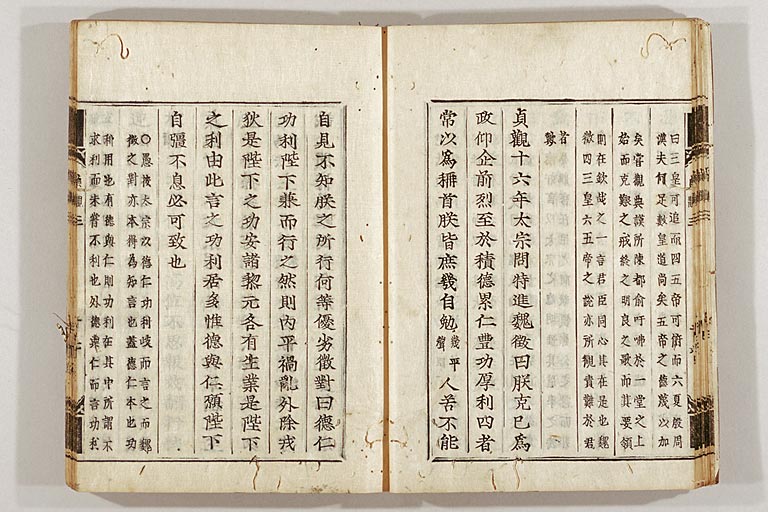 曰三皇可追而四五帝可俯而六夏殷周
漢夫何足數皇道尚矣五帝之舊蔑以加
矣嘗觀典謨所陳都俞吁咈於一堂之上
始而克艱之戒終之明良之歌而其要領
則在欽哉之一言君臣同心其在是也魏
徵四三皇六五帝之說亦所觀責難於君
者
歟
貞觀十六年太宗問特進魏徵曰朕克己爲
政仰企前烈至於積德累仁豐功厚利四者
常以爲稱首朕皆庶幾自勉幾平聲人苦不能
自見不知朕之所行何等優劣徵對曰德仁
功利陛下兼而行之然則內平禍亂外除戎
狄是陛下之功安諸黎元各有生業是陛下
之利由此言之功利居多惟德與仁願陛下
自彊不息必可致也
○愚按太宗以德仁功利歧而言之而魏
徵之對亦本得爲知言也蓋德仁本也功
利用也有德與仁則功利在其中所謂不
求利而未嘗不利也外德棄仁而言功利